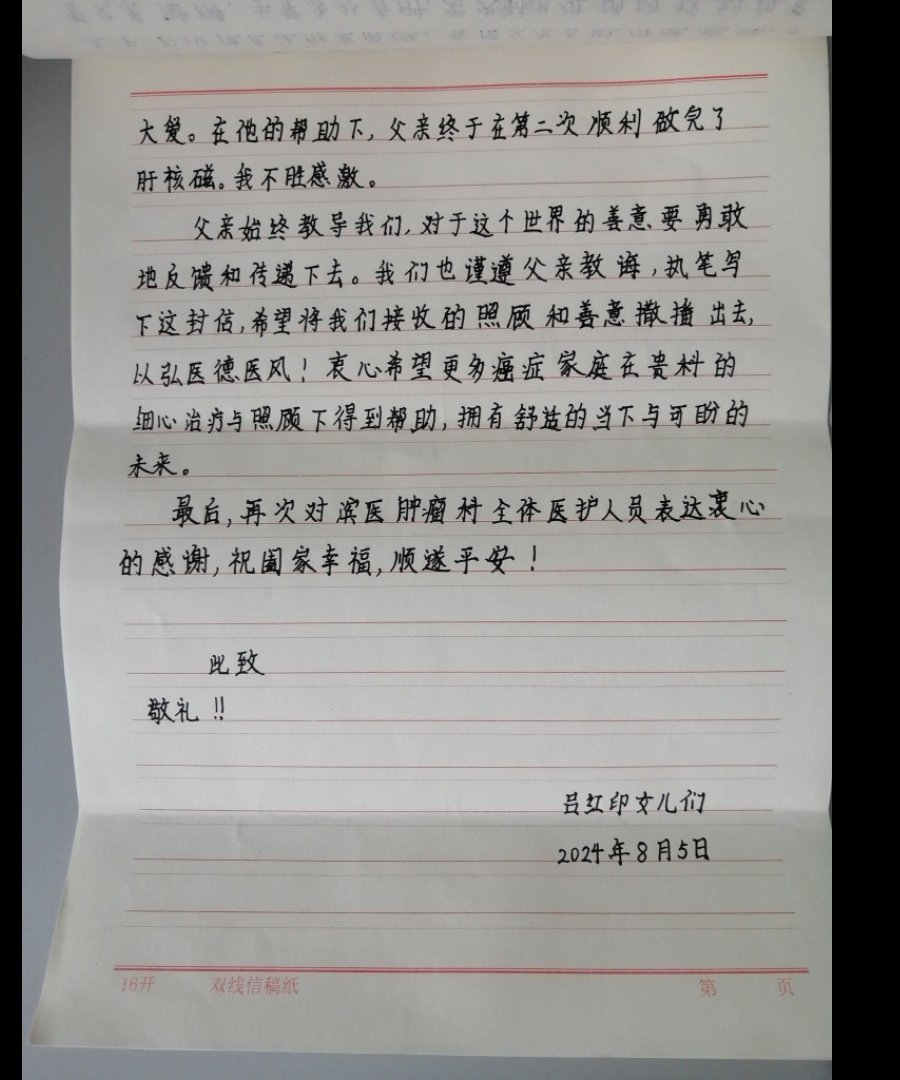 大爱。在他的帮助下,父亲终于在第二次顺利做完了
肝核磁。我不胜感激。
父亲始终教导我们,对于这个世界的善意要勇敢
地反馈和传递下去。我们也谨遵父亲教诲,执笔写
下这封信,希望将我们接收的照顾和善意撒播出去,
以弘医德医风!衷心希望更多癌症家庭在贵科的
细心治疗与照顾下得到帮助,拥有舒适的当下与可盼的
未来。
最后,再次对滨医肿瘤科全体医护人员表达衷心
的感谢,祝阖家幸福,顺遂平安!
此致
敬礼!!
吕红印女儿们
2024年8月5日
16开 双线信稿纸 第 页